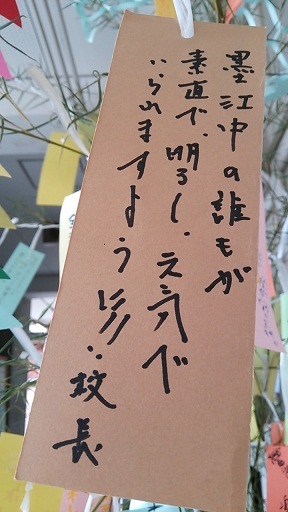 墨江中の誰もが
素直で、明るく、元気で
いられますように。校長